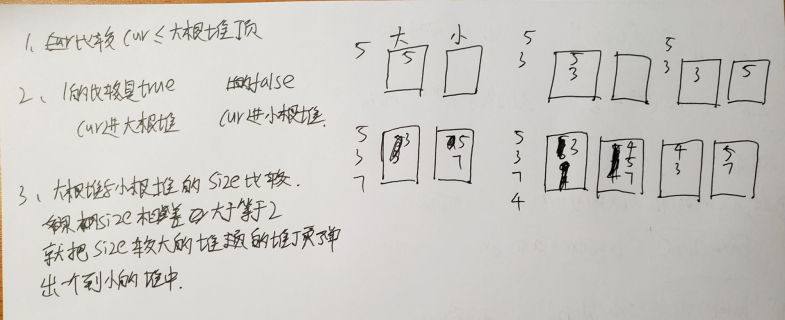 1、比较 cur ≤ 大根堆堆顶
2、1的比较是true 1的false
cur进大根堆 cur进小根堆.
3、大根堆与小根堆的 size 比较.
如果size 相差 大于等于2
就把 size 较大的堆的堆顶弹
出一个到小的堆中.
大 小
5 5
5 3 5 3
5 3 3 5
5 3 7 3 5 7
5 3 7 4 3 4 5 7 4 3 5 7